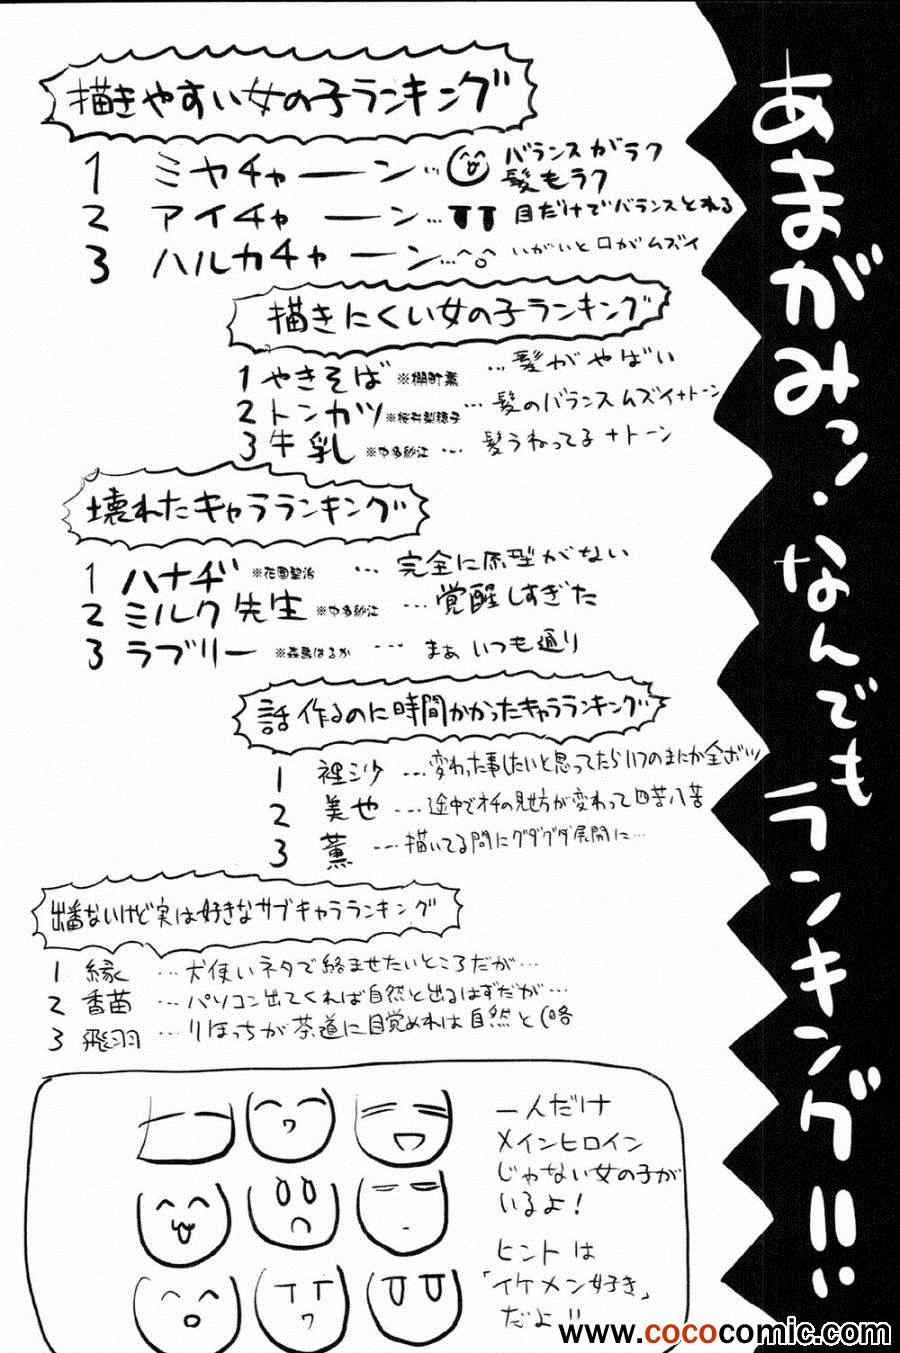 あまがみっ!なんでもランキング!!
描きやすい女の子ランキング
1 ミヤチャーン… バランスがラク
髪もラク
2 アイチャーン… 目だけでバランスとれる
3 ハルカチャーン… いがいと口がムズイ
描きにくい女の子ランキング
1 やきそば ※棚町薫 …髪がやばい
2 トンカツ ※桜井梨穂子 …髪のバランスムズイ+トーン
3 牛乳 ※中多紗江 …髪うねってる+トーン
壊れたキャラランキング
1 ハナヂ ※花園聖治 …完全に原型がない
2 ミルク先生 ※中多紗江 …覚醒しすぎた
3 ラブリー ※森島はるか …まぁいつも通り
話作るのに時間かかったキャラランキング
1 裡沙 …変わった事したいと思ってたらいつのまにか全ボツ
2 美也 …途中でオチの見せ方が変わって四苦八苦
3 薫 …描いてる間にグダグダ展開に…
出番ないけど実は好きなサブキャラランキング
1 縁 …犬使いネタで絡ませたいところだが…
2 香苗 …パソコン出てくれば自然と出るはずだが…
3 飛羽 …りほっちが茶道に目覚めれば自然と(略
一人だけ
メインヒロイン
じゃない女の子が
いるよ!
ヒントは
「イケメン好き」
だよ!!
www.cococomic.com